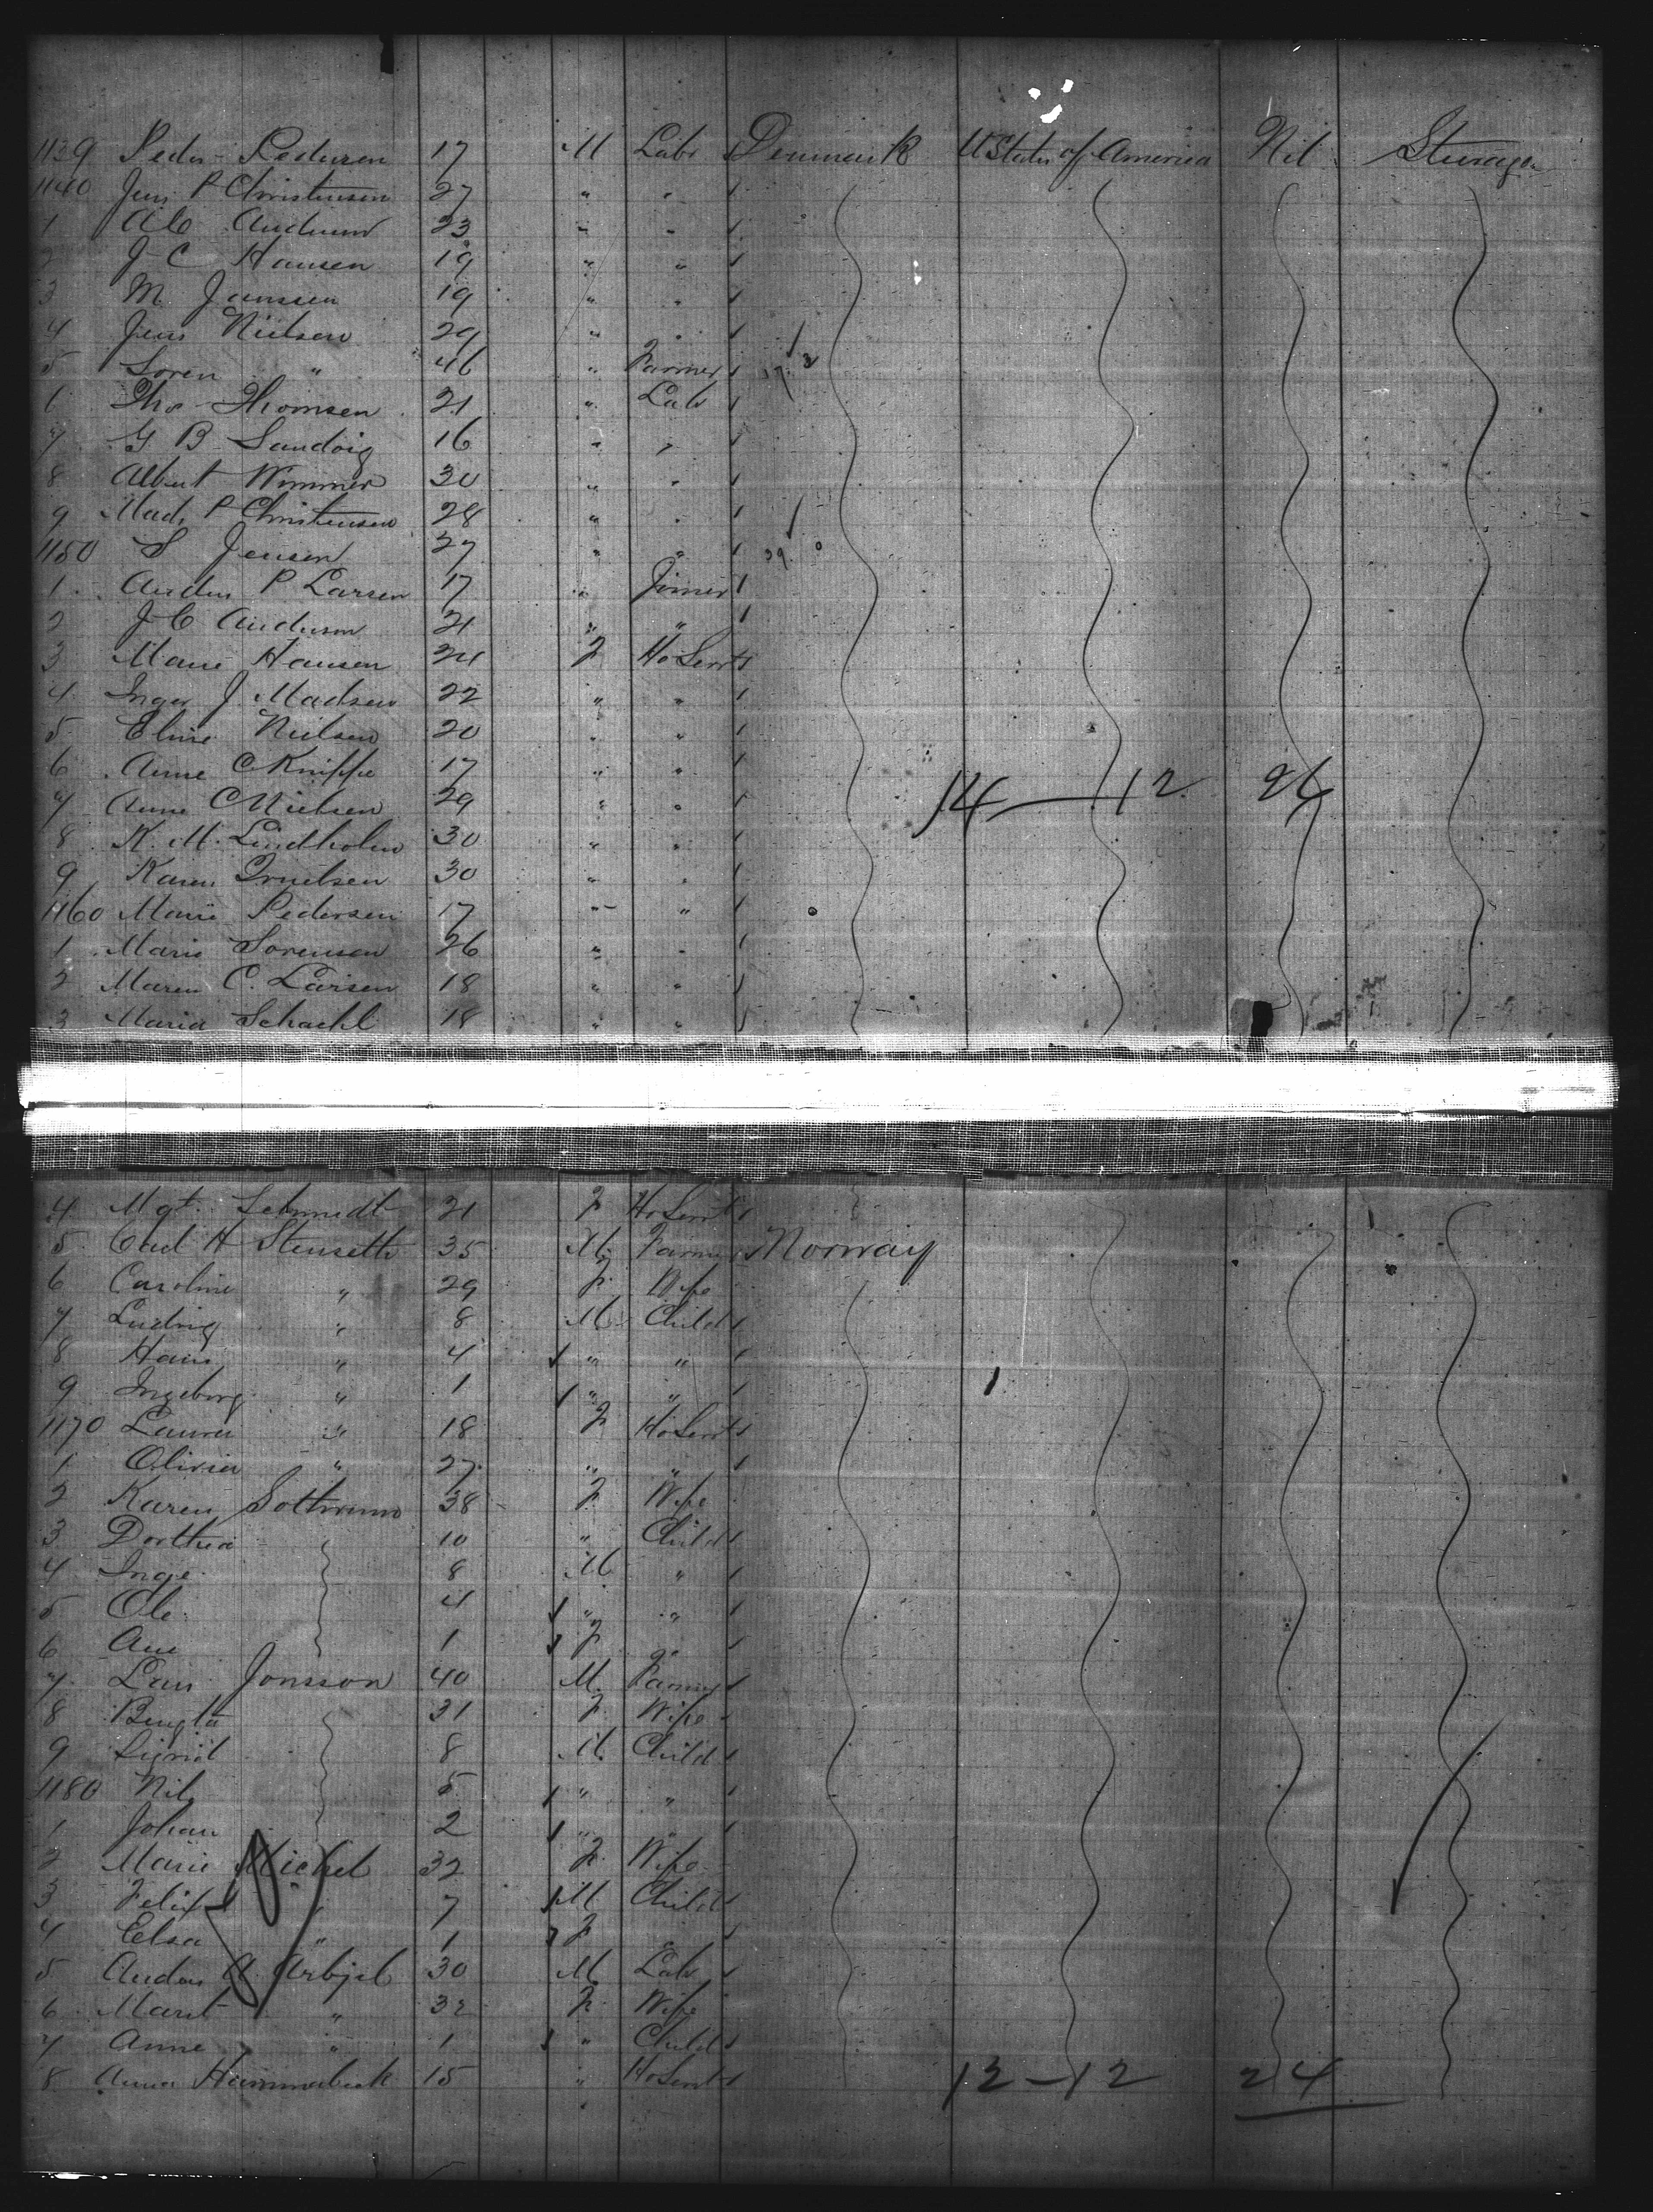 1139 Peder Pedersen 17 M Labr Denmark U States of America Nil Steerage
1140 Jens P Christensen 27 " "
1 Andersen 23 " "
2 J C Hansen 19 " "
3 M Janssen 19 " "
4 Jens Nielsen 29 " "
5 Soren " 46 " Farmer
6 Tho Thomsen 21 " Labr
7 G B Sandvig 16 " "
8 Albert Wimmer 30 " "
9 Mads P Christensen 28 " "
1150 S Jensen 27 " "
1 Anders P Larsen 17 " Joiner
2 J C Andersen 21 " "
3 Marie Hansen 24 F Ho Servt
4 Inger J Madsen 22 " "
5 Eline Nielsen 20 " "
6 Anne C Knippe 17 " "
7 Anne C Nielsen 29 " " 14 — 12 26
8 K. M. Lindholm 30 " "
9 Karen 30 " "
1160 Marie Pedersen 17 " "
1 Marie Sorensen 26 " "
2 Maren C. Larsen 18 " "
3 Maria Schachl 18 " "
4 Mgt Schmidt 21 F Ho Servt
5 Carl H Stenseth 35 M Farmer Norway
6 Caroline " 29 F Wife
7 Ludvig " 8 M Child
8 Hans " 4 " "
9 Ingeborg " 1 " "
1170 Laura " 18 F Ho Servt
1 Olivia " 27 " "
2 Karen 38 F Wife
3 Dorthea 10 " Child
4 Inge 8 M "
5 Ole 4 " "
6 Ane 1 F "
7 Lars Jonsson 40 M Farmer
8 Bengta 31 F Wife
9 Sigrid 8 M Child
1180 Nils 5 " "
1 Johan 2 " "
2 Marie Michel 32 F Wife
3 Felix " 7 M Child
4 Elsa " 1 F "
5 Anders A Arbjel 30 M Labr
6 Marit " 32 F Wife
7 Anne " 1 " Child
8 Anna Hammerbeck 15 " Ho Servt 12 — 12 24